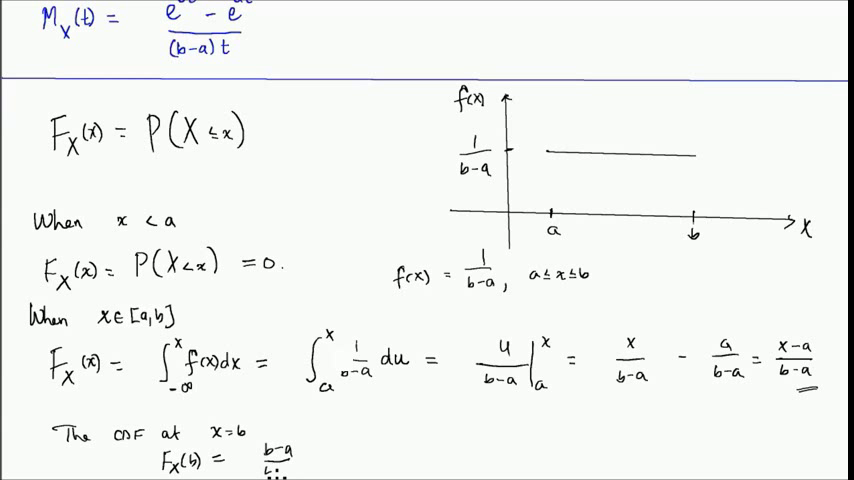 M_X(t) = (e - e)/((b-a)t)
F_X(x) = P(X ≤ x)
f(x)
1/(b-a)
a
b
x
When x < a
F_X(x) = P(X < x) = 0.
f(x) = 1/(b-a), a ≤ x ≤ b
When x ∈ [a,b]
F_X(x) = ∫_{-∞}^{x} f(x)dx = ∫_{a}^{x} 1/(b-a) du = u/(b-a) |_{a}^{x} = x/(b-a) - a/(b-a) = (x-a)/(b-a)
The CDF at x=b
F_X(b) = b-a